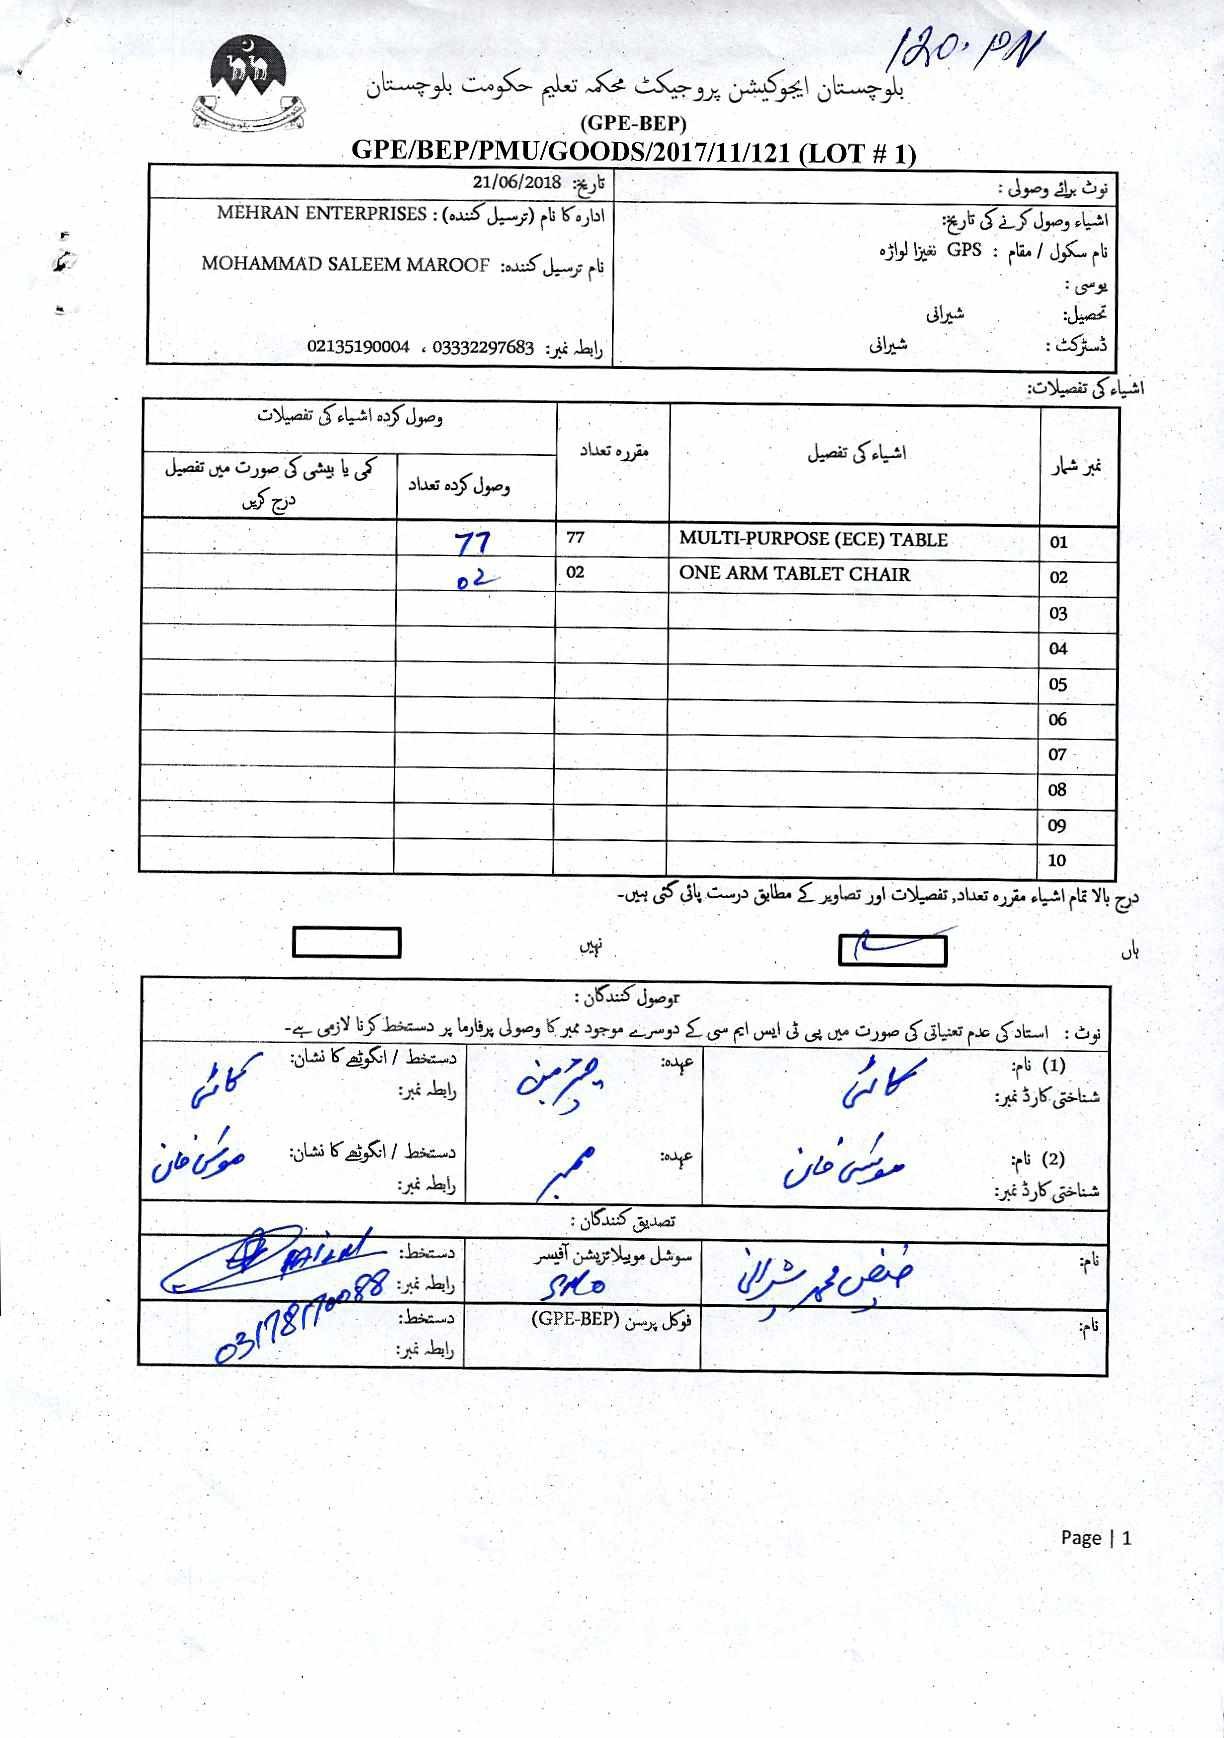 120. PM
بلوچستان ایجوکیشن پروجیکٹ محکمہ تعلیم حکومت بلوچستان
(GPE-BEP)
GPE/BEP/PMU/GOODS/2017/11/121 (LOT # 1)
نوٹ برائے وصولی :
اشیاء وصول کرنے کی تاریخ:
نام سکول / مقام : GPS نغیزا لواڑہ
یوسی :
تحصیل: شیرانی
ڈسٹرکٹ : شیرانی
تاریخ: 21/06/2018
ادارہ کا نام (ترسیل کنندہ) : MEHRAN ENTERPRISES
نام ترسیل کنندہ: MOHAMMAD SALEEM MAROOF
رابطہ نمبر: 03332297683 ، 02135190004
اشیاء کی تفصیلات:
نمبر شمار اشیاء کی تفصیل مقررہ تعداد وصول کردہ اشیاء کی تفصیلات
وصول کردہ تعداد کمی یا بیشی کی صورت میں تفصیل درج کریں
01 MULTI-PURPOSE (ECE) TABLE 77 77
02 ONE ARM TABLET CHAIR 02 02
03
04
05
06
07
08
09
10
درج بالا تمام اشیاء مقررہ تعداد, تفصیلات اور تصاویر کے مطابق درست پائی گئی ہیں۔
ہاں نہیں
وصول کنندگان :
نوٹ : استاد کی عدم تعیناتی کی صورت میں پی ٹی ایس ایم سی کے دوسرے موجود ممبر کا وصولی پرفارما پر دستخط کرنا لازمی ہے۔
(1) نام: عہدہ: چیئرمین دستخط / انگوٹھے کا نشان:
شناختی کارڈ نمبر: رابطہ نمبر:
(2) نام: موسیٰ خان عہدہ: ممبر دستخط / انگوٹھے کا نشان: موسیٰ خان
شناختی کارڈ نمبر: رابطہ نمبر:
تصدیق کنندگان :
نام: فیض محمد شیرانی سوشل موبیلائزیشن آفیسر SMO دستخط:
رابطہ نمبر: 03178170088
نام: فوکل پرسن (GPE-BEP) دستخط:
رابطہ نمبر:
Page | 1